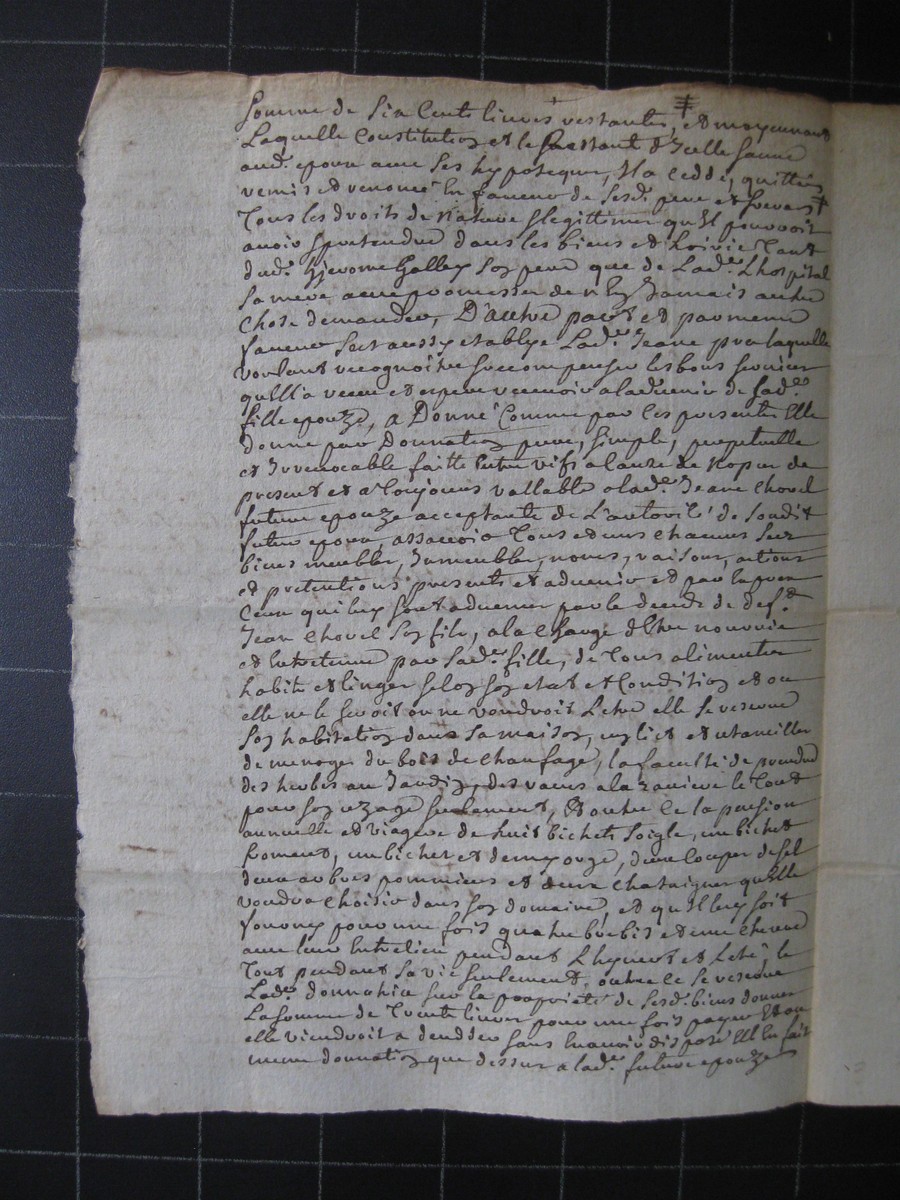 Somme de Six Cents livres restantes, ‡ et moyennant
Laquelle Constitution et le Restant d'Icelle Sauue
aud. epoux auec Ses hypoteques, Il a cedde, quitté,
remis et renoncé En faueur de Sesd. pere et freres ‡
Tous les droits de Nature & legittime qu'Il pouvoit
auoir & pretendre dans les biens et hoirie Tant
dud. Hjerome Galley Son pere que de Lad.e Lhospital
Sa mere auec promesse de n'En Jamais autre
Chose demander, D'autre part et par meme
faueur S'est aussy etablye Lad.e Jeane laquelle
voulant recognoitre & recompenser les bons services
qu'Ell'a receu et espere receuoir a laduenir de Sad.e
fille epouze, a Donné Comme par Ces presentes Elle
donne par Donnation pure, Simple, perpetuelle
et Irreuocable faitte Entre vifs a cause de Nopces de
present et a Toujours vallable a lad.e Jeane Chovel
future epouze acceptante de L'autorité de Soudit
futur epoux, assauoir Tous et uns chacuns Ses
biens meubles, Immeubles, noms, raisons, actions
et pretentions presents et aduenir et par expres
Ceux qui luy Sont aduenus par le deceds de def.t
Jean Chovel Son fils, a la Charge d'Etre nourrie
et Entretenue par Sad.e fille, de Tous alimentes
habits et linges Selon Son etat et Condition et ou
elle ne le Seroit ou ne voudroit L'etre elle Se reserve
Son habitation dans Sa maison, un lict et utancilles
de menage, du bois de chaufage, la faculté de prendre
des herbes au Jardin, des raves a la raviere le Tout
pour Son uzage Seulement, Et outre Ce la pension
annuelle et viagere de huit bichets Soigle, un bichet
froment, un bichet et demy orge, deux Coupes de Sel
deux arbres pommiers et deux chataigners qu'Elle
voudra Choisir dans Son domaine, et qu'Il luy Soit
fourny pour une fois quatre brebis et une chevre
auec leur Entretien pendant L'hyuert et L'eté, le
Tout pendant Sa vie Seulement, outre Ce Se reserve
Lad.e donnatrice Sur la proprieté de Sesd. biens donnes
La Somme de Trente livres pour une fois payer Et ou
elle viendroit a decedder Sans En auoir disposé Elle En fait
meme donnation que dessus a lad.e future epouze